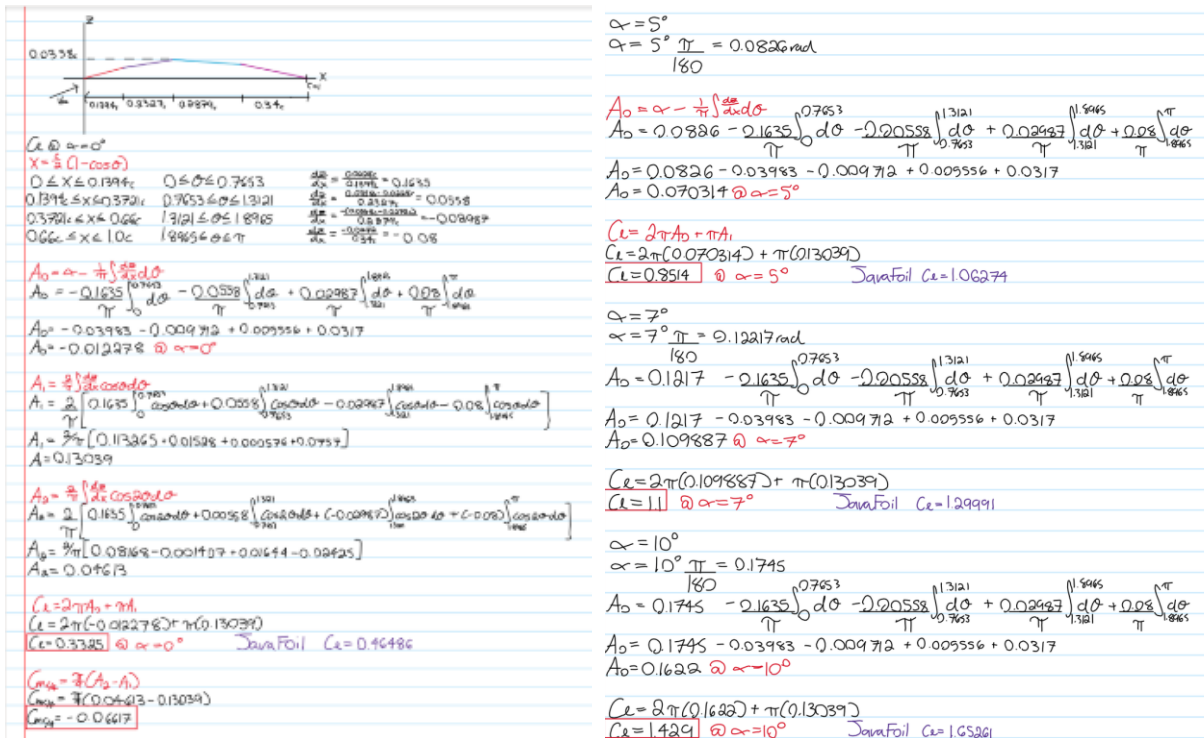 z
0.0338c
x
0.1394c 0.2327c 0.2879c 0.34c
Cl @ α=0°
X = c/2 (1-cosθ)
0 ≤ x ≤ 0.1394c 0 ≤ θ ≤ 0.7653 dz/dx = 0.0228c/0.1394c = 0.1635
0.1394c ≤ x ≤ 0.3721c 0.7653 ≤ θ ≤ 1.3121 = 0.0558
0.3721c ≤ x ≤ 0.66c 1.3121 ≤ θ ≤ 1.8965 = -0.02987
0.66c ≤ x ≤ 1.0c 1.8965 ≤ θ ≤ π = -0.08
A₀ = α - 1/π ∫ dz/dx dθ
A₀ = -0.1635/π ∫₀^0.7653 dθ - 0.0558/π ∫ dθ + 0.02987/π ∫ dθ + 0.08/π ∫ dθ
A₀ = -0.03983 - 0.009712 + 0.005556 + 0.0317
A₀ = -0.012278 @ α=0°
A₁ = 2/π ∫ dz/dx cosθdθ
A₁ = 2/π [0.1635 ∫ cosθdθ + 0.0558 ∫ cosθdθ - 0.02987 ∫ cosθdθ - 0.08 ∫ cosθdθ]
A₁ = 2/π [0.113265 + 0.01528 + 0.000576 + 0.0757]
A = 0.13039
A₂ = 2/π ∫ dz/dx cos2θdθ
A₂ = 2/π [0.1635 ∫ cos2θdθ + 0.00558 ∫ cos2θdθ + (-0.02987) ∫ cos2θdθ + (-0.08) ∫ cos2θdθ]
A₂ = 2/π [0.08168 - 0.001407 + 0.01644 - 0.02425]
A₂ = 0.04613
Cl = 2πA₀ + πA₁
Cl = 2π(-0.012278) + π(0.13039)
Cl = 0.3325 @ α=0° JavaFoil Cl = 0.46486
Cmc/4 = π/4 (A₂ - A₁)
Cmc/4 = π/4 (0.04613 - 0.13039)
Cmc/4 = -0.06617
α = 5°
α = 5° π/180 = 0.0826 rad
A₀ = α - 1/π ∫ dz/dx dθ
A₀ = 0.0826 - 0.1635/π ∫₀^0.7653 dθ - 0.00558/π ∫_0.7653^1.3121 dθ + 0.02987/π ∫_1.3121^1.8965 dθ + 0.08/π ∫_1.8965^π dθ
A₀ = 0.0826 - 0.03983 - 0.009712 + 0.005556 + 0.0317
A₀ = 0.070314 @ α=5°
Cl = 2πA₀ + πA₁
Cl = 2π(0.070314) + π(0.13039)
Cl = 0.8514 @ α=5° JavaFoil Cl = 1.06274
α = 7°
α = 7° π/180 = 0.12217 rad
A₀ = 0.1217 - 0.1635/π ∫₀^0.7653 dθ - 0.00558/π ∫_0.7653^1.3121 dθ + 0.02987/π ∫_1.3121^1.8965 dθ + 0.08/π ∫_1.8965^π dθ
A₀ = 0.1217 - 0.03983 - 0.009712 + 0.005556 + 0.0317
A₀ = 0.109887 @ α=7°
Cl = 2π(0.109887) + π(0.13039)
Cl = 1.1 @ α=7° JavaFoil Cl = 1.29991
α = 10°
α = 10° π/180 = 0.1745
A₀ = 0.1745 - 0.1635/π ∫₀^0.7653 dθ - 0.00558/π ∫_0.7653^1.3121 dθ + 0.02987/π ∫_1.3121^1.8965 dθ + 0.08/π ∫_1.8965^π dθ
A₀ = 0.1745 - 0.03983 - 0.009712 + 0.005556 + 0.0317
A₀ = 0.1622 @ α=10°
Cl = 2π(0.1622) + π(0.13039)
Cl = 1.429 @ α=10° JavaFoil Cl = 1.65261